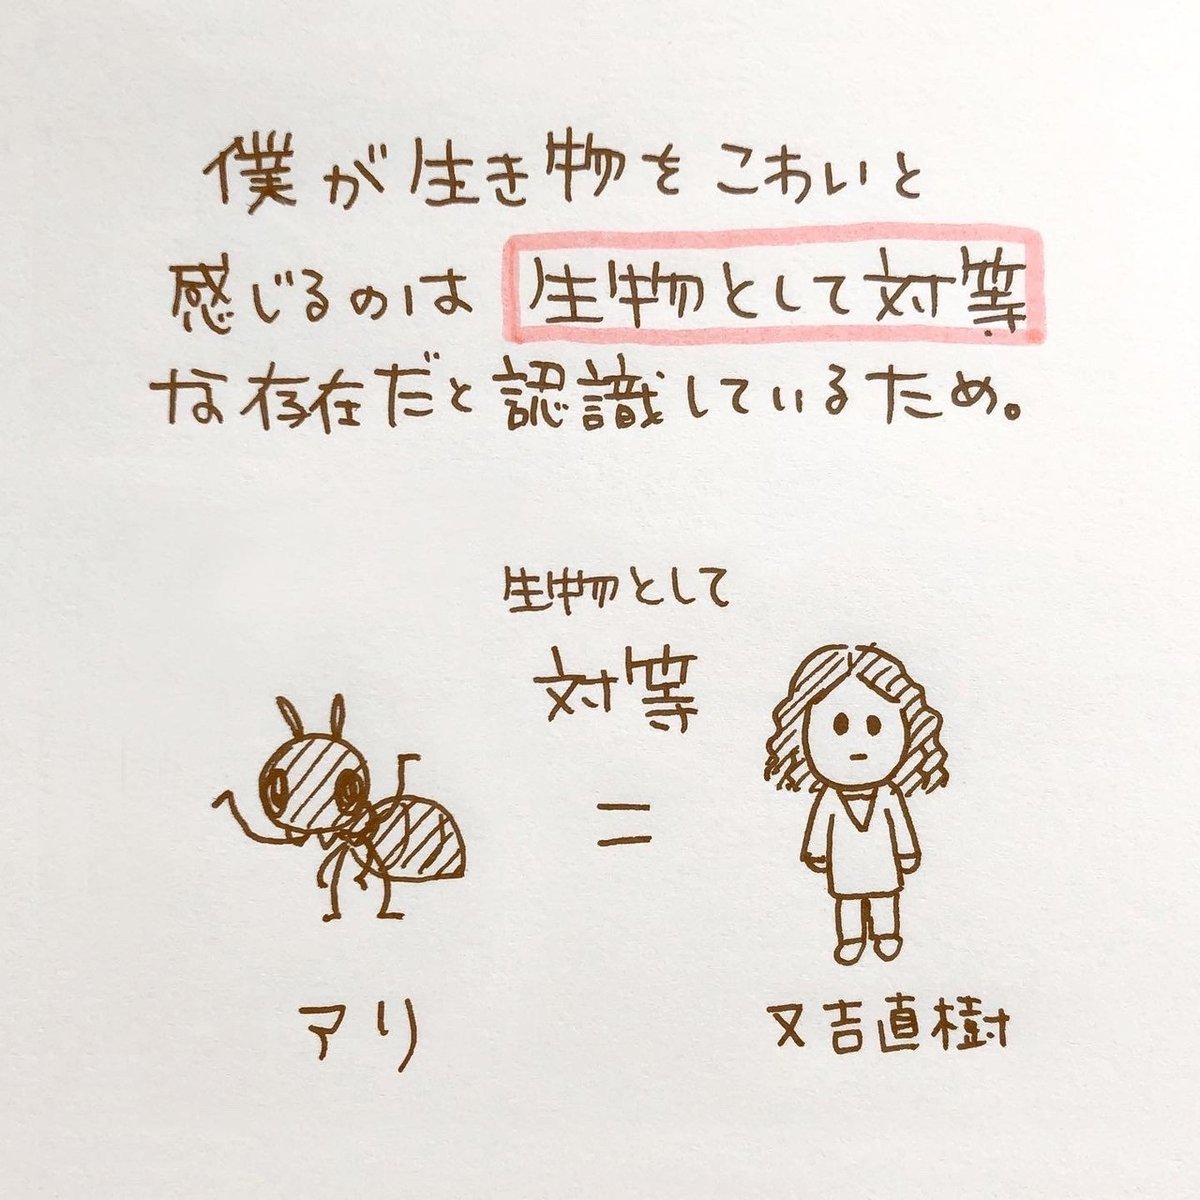 僕が生き物をこわいと
感じるのは 生物として対等
な存在だと認識しているため。
生物として
対等
=
アリ
又吉直樹